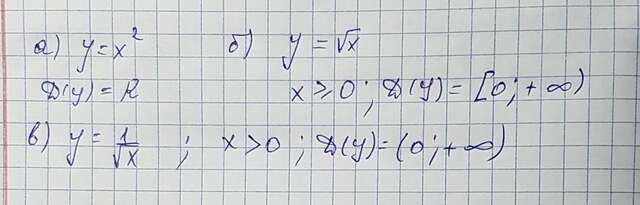 а) y = x² б) y = √x
D(y) = R x ⩾ 0 ; D(y) = [0 ; + ∞)
в) y = 1/√x ; x > 0 ; D(y) = (0 ; + ∞)